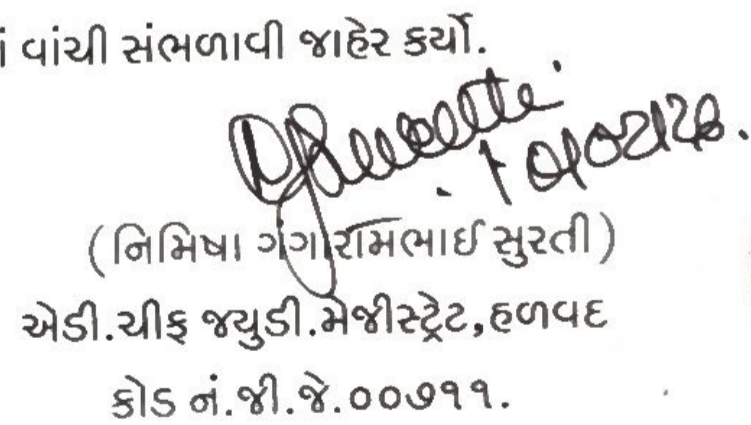 વાંચી સંભળાવી જાહેર કર્યો.
(નિમિષા ગંગારામભાઈ સુરતી)
એડી.ચીફ જ્યુડી.મેજીસ્ટ્રેટ,હળવદ
કોડ નં.જી.જે.૦૦૭૧૧.